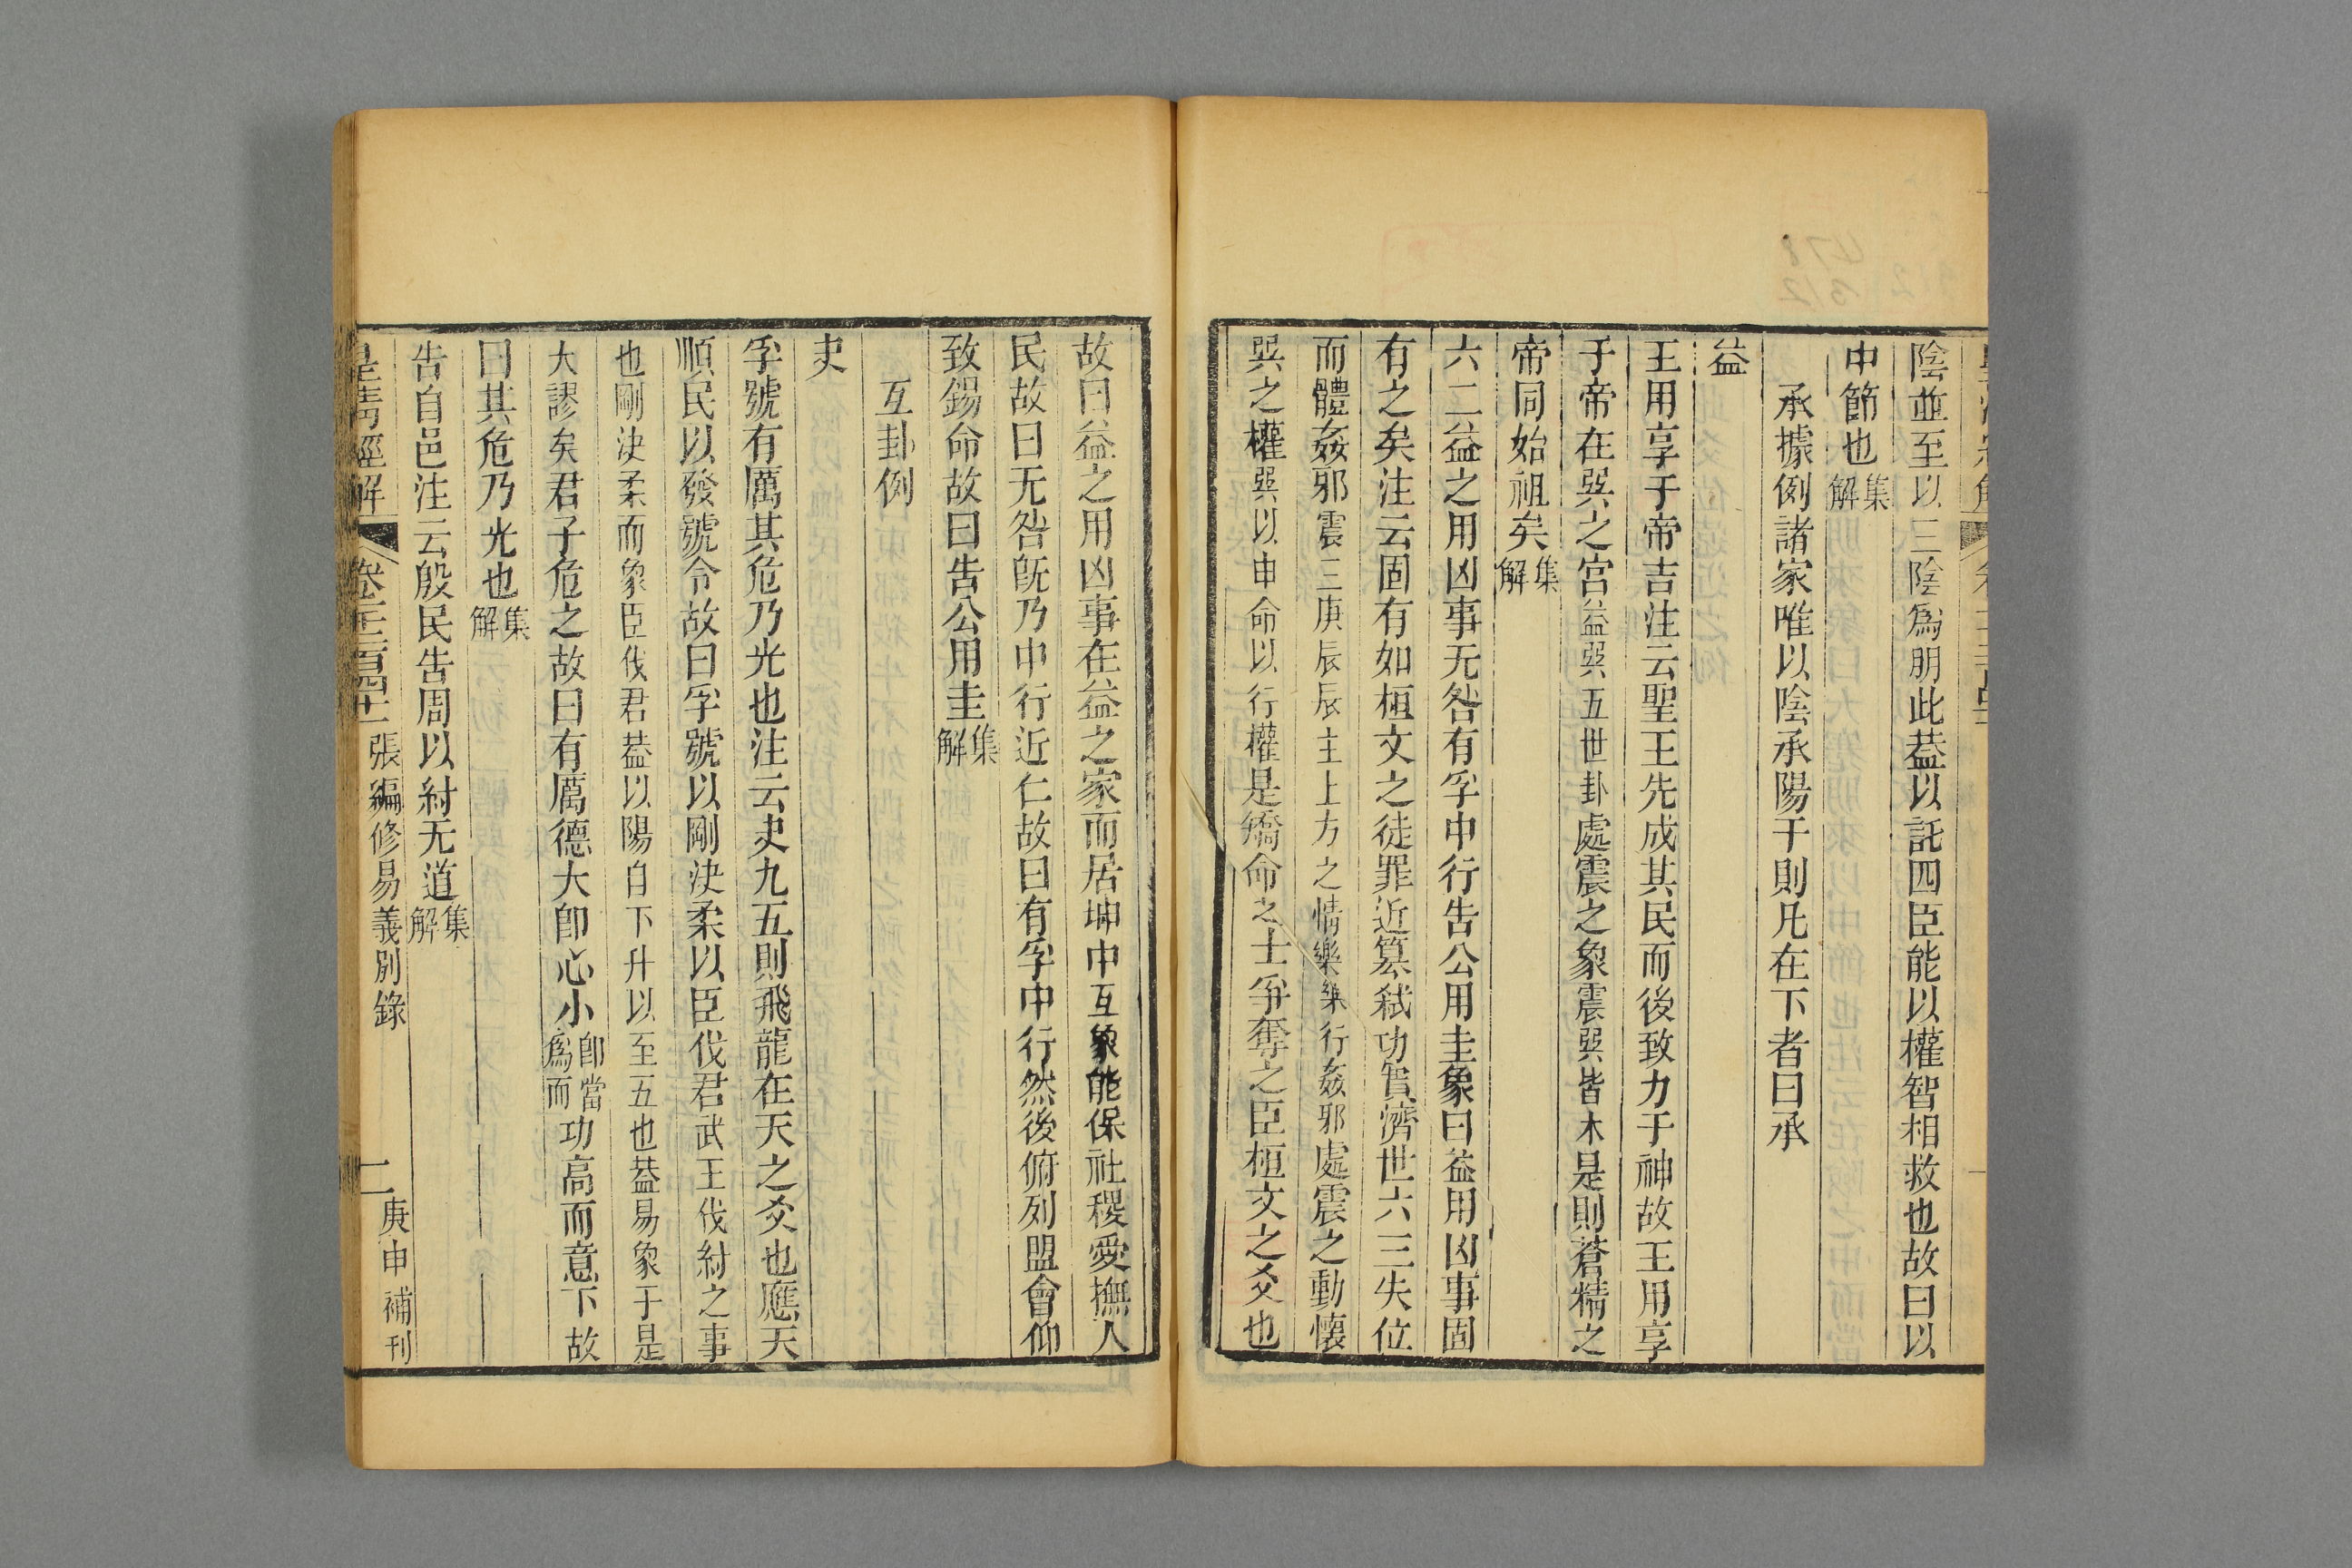 陰並至以三陰爲朋此葢以託四臣能以權智相救也故曰以
中節也集解
承據例諸家唯以陰承陽于則凡在下者曰承
益
王用享于帝吉注云聖王先成其民而後致力于神故王用享
于帝在巽之宮益巽五世卦處震之象震巽皆木是則蒼精之
帝同始祖矣集解
六二益之用凶事无咎有孚中行告公用圭象曰益用凶事固
有之矣注云固有如桓文之徒罪近篡弒功實濟世六三失位
而體姦邪震三庚辰辰主上方之情樂樂行姦邪處震之動懷
巽之權巽以申命以行權是矯命之士爭奪之臣桓文之爻也
故曰益之用凶事在益之家而居坤中互象能保社稷愛撫人
民故曰无咎旣乃中行近仁故曰有孚中行然後俯列盟會仰
致錫命故曰告公用圭集解
互卦例
夬
孚號有厲其危乃光也注云夬九五則飛龍在天之爻也應天
順民以發號令故曰孚號以剛決柔以臣伐君武王伐紂之事
也剛決柔而象臣伐君葢以陽自下升以至五也葢易象于是
大謬矣君子危之故曰有厲德大卽心小卽當爲而功高而意下故
曰其危乃光也集解
告自邑注云殷民告周以紂无道集解
皇淸經解 卷一千二百四十一 張編修易義別錄 二 庚申補刊